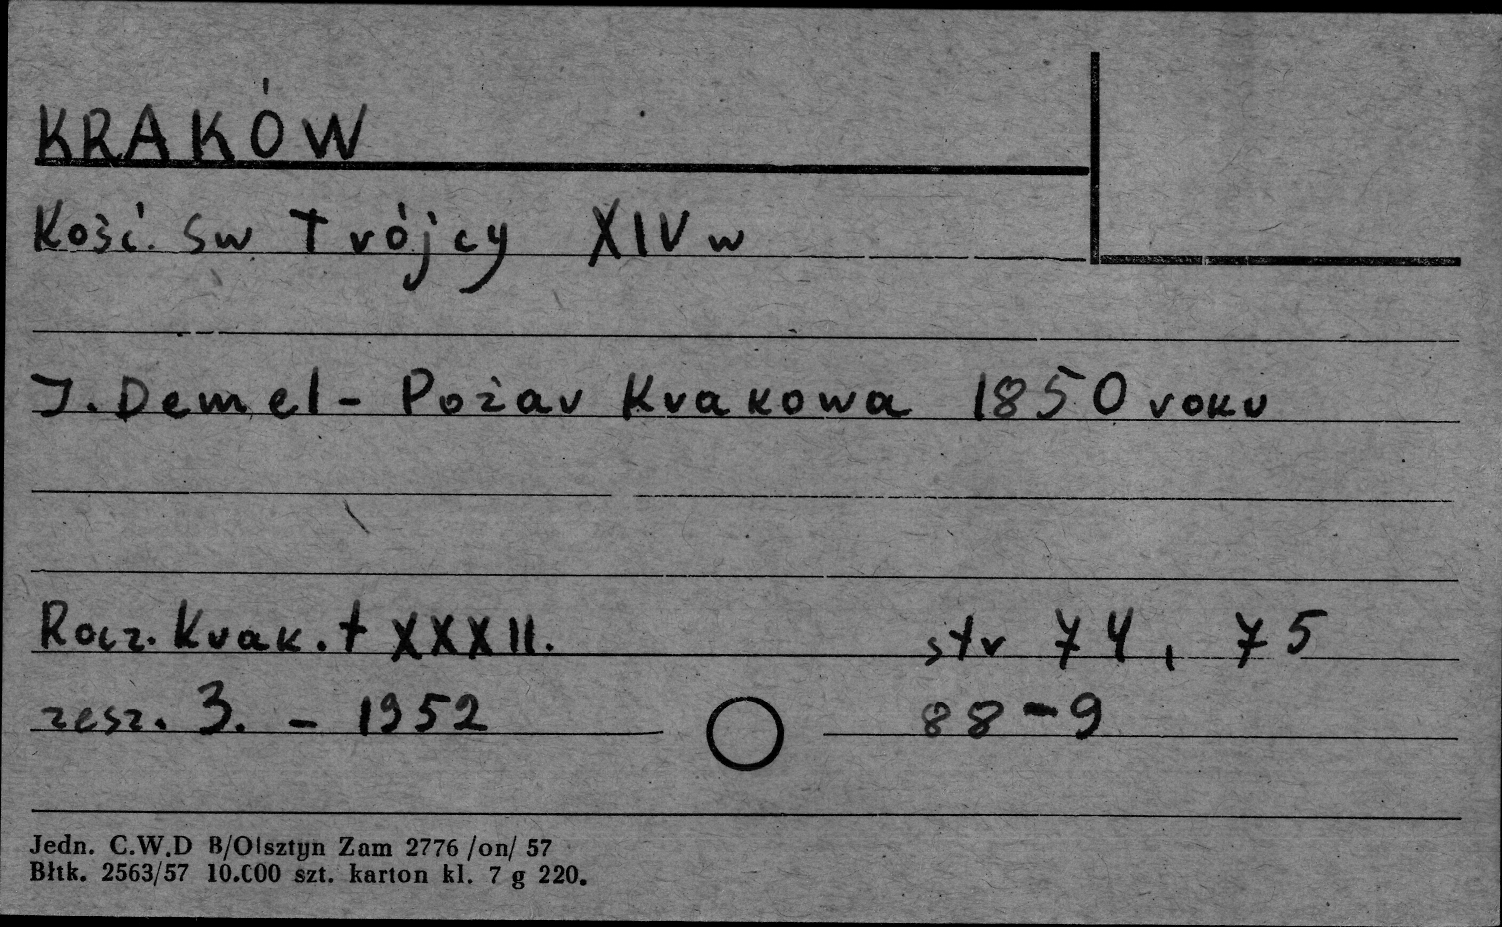 KRAKÓW
Kość. św Trójcy XIV w
J. Demel - Pożar Krakowa 1850 roku
Rocz. Krak. t XXXII. str 74, 75
zesz. 3. - 1952 88-9
Jedn. C.W.D B/Olsztyn Zam 2776 /on/ 57
Błtk. 2563/57 10.000 szt. karton kl. 7 g 220.